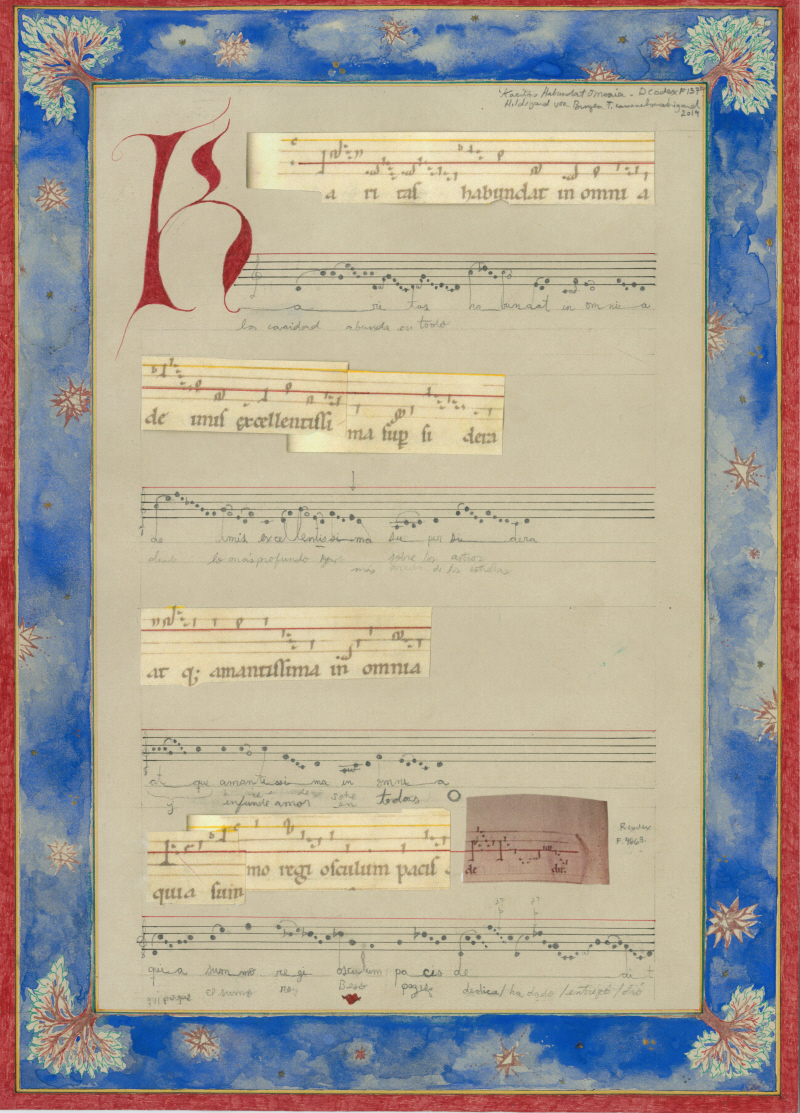 Karitas Habundat Omnia. D codex F 137
Hildegard von Bingen T.
2014
K
a ri tas habundat in omni a
a ri tas ha bundat in omni a
la caridad abunda en todo
de imis excellentissi
ma sup si dera
de imis excellentissi ma su per si dera
desde lo más profundo sobre los astros
más de las estrellas
at q; amantissima in omnia
at que amantissi ma in omni a
y infunde amor en todas
mo regi osculum pacis
quia sum
de dit
R codex
F 466
37 37
qui a summo re gi osculum pa cis de di t
porque el sumo rey Beso dedica / ha dado / entregó / dió